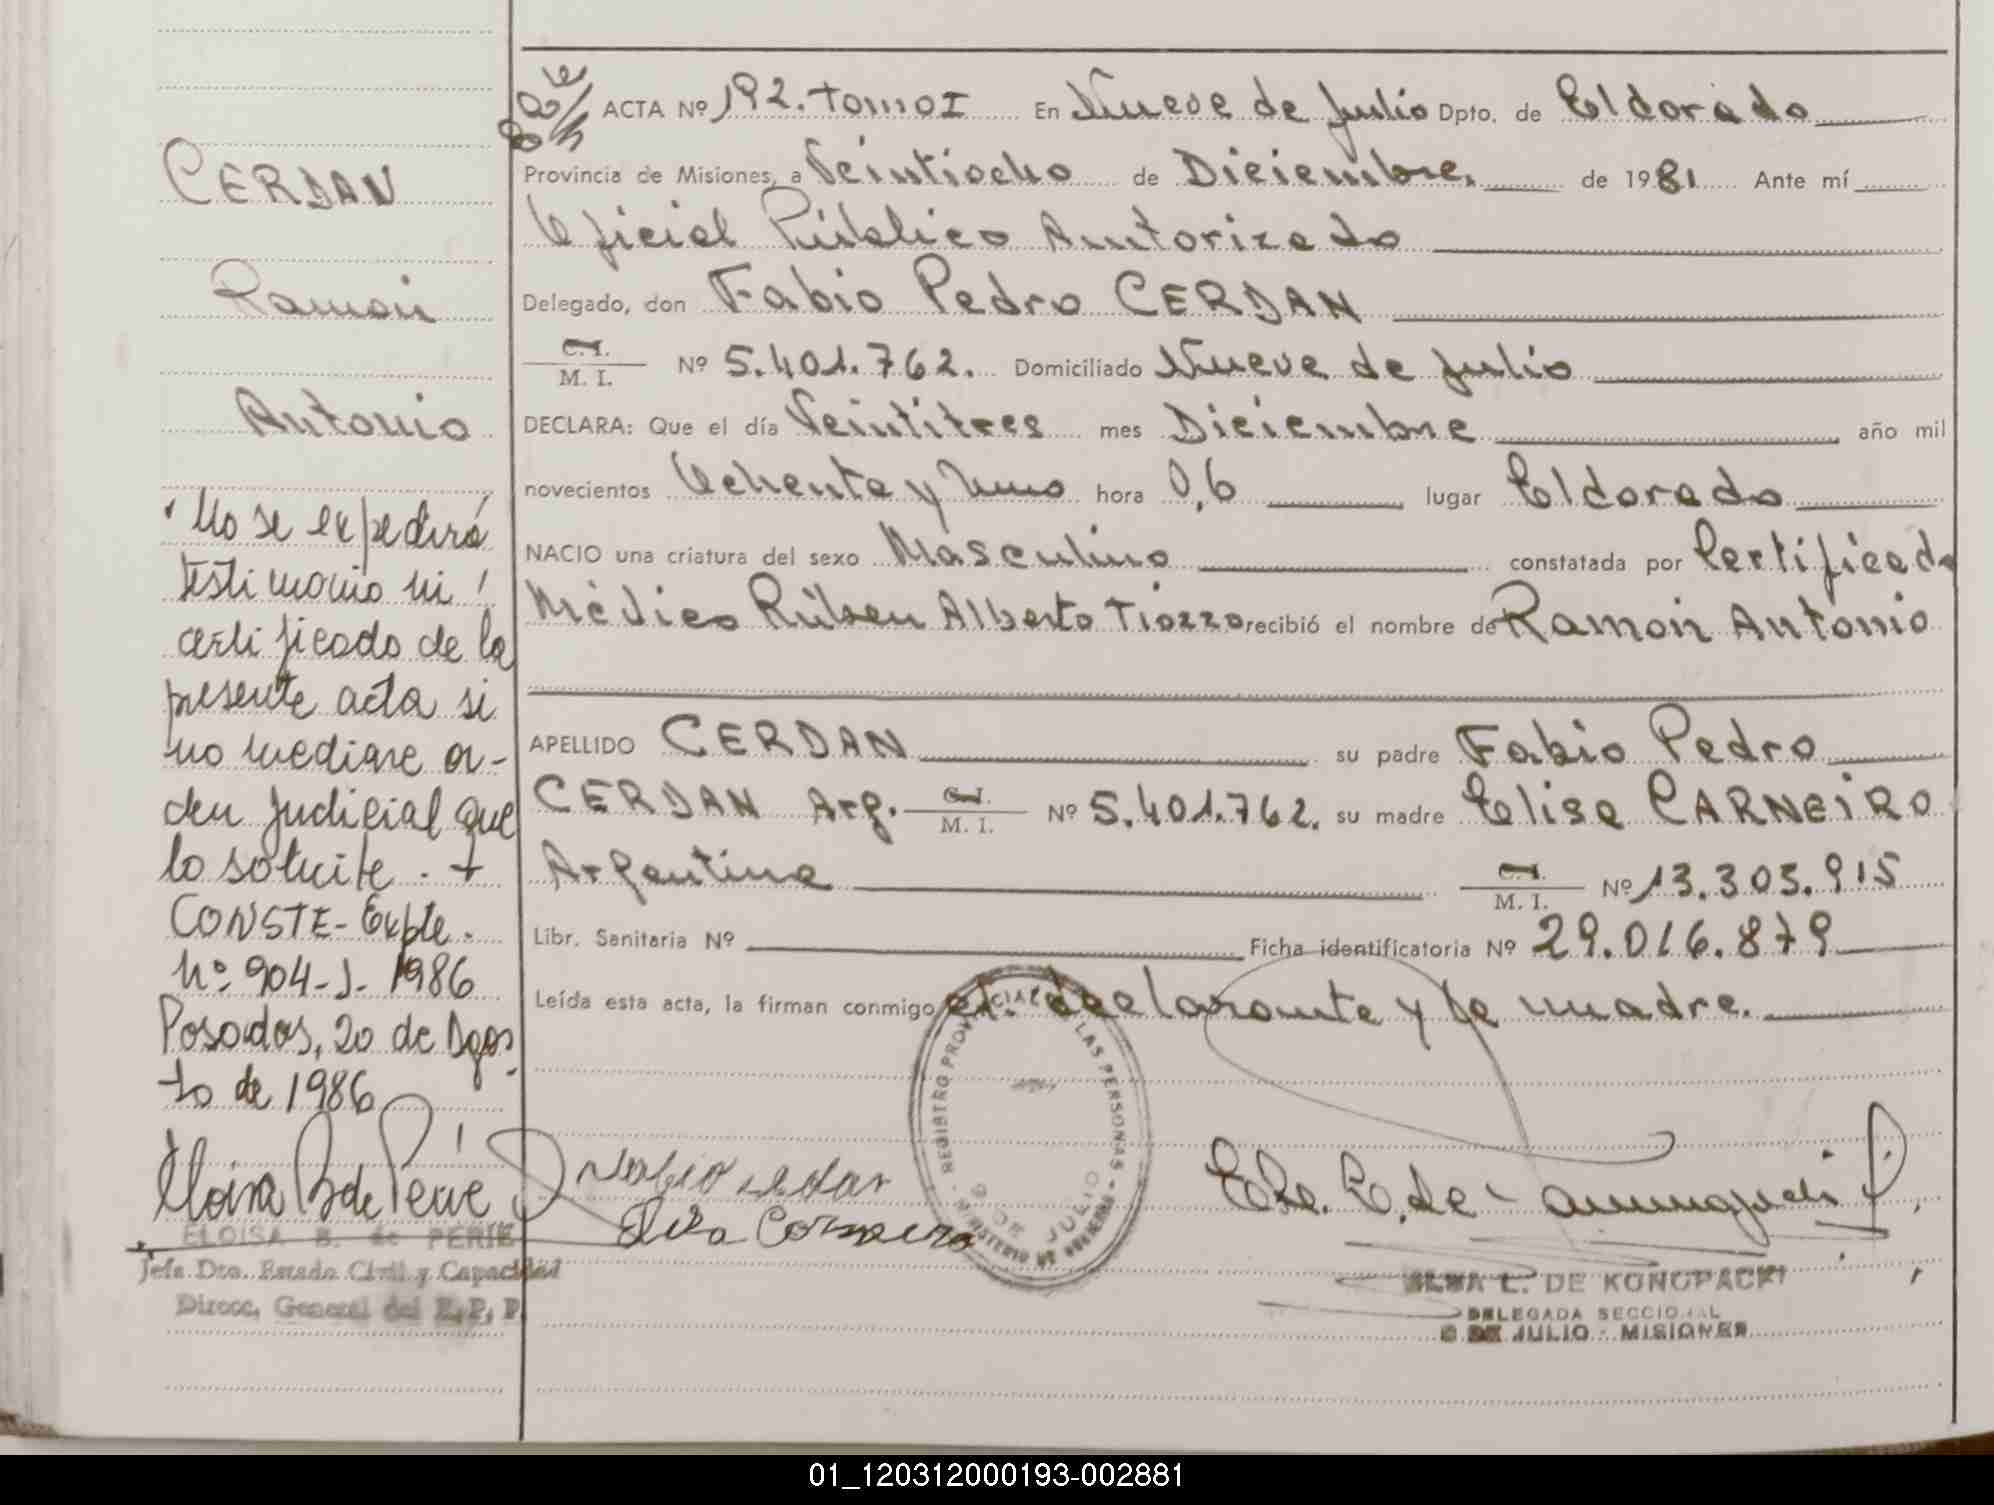 CERDAN
Ramón
Antonio
No se expedirá
testimonio ni
certificado de la
presente acta si
no mediare or-
den judicial que
lo solicite. +
CONSTE- Expte.
Nº 904-J- 1986
Posadas, 20 de Agos
to de 1986
ELOISA B. de PERIE
Jefa Dto. Estado Civil y Capacidad
Direcc. General del R. P. P.
ACTA Nº 192. tomo I En Nueve de Julio Dpto. de Eldorado
Provincia de Misiones, a Veintiocho de Diciembre. de 1981 Ante mí
Oficial Público Autorizado
Delegado, don Fabio Pedro CERDAN
C. I.
M. I. Nº 5.401.762. Domiciliado Nueve de Julio
DECLARA: Que el día Veintitres mes Diciembre año mil
novecientos Ochenta y Uno hora 0,6 lugar Eldorado
NACIO una criatura del sexo Masculino constatada por Certificado
Médico Rúben Alberto Tiozzo recibió el nombre de Ramón Antonio
APELLIDO CERDAN su padre Fabio Pedro
CERDAN Arg. C. I. M. I. Nº 5.401.762. su madre Elisa CARNEIRO
Argentina C. I. M. I. Nº 13.303.915
Libr. Sanitaria Nº Ficha identificatoria Nº 29.016.879
Leída esta acta, la firman conmigo el declarante y la madre.
REGISTRO PROVINCIAL DE LAS PERSONAS
9 DE JULIO
ELSA L. DE KONOPACKI
DELEGADA SECCIONAL
9 DE JULIO - MISIONES
01_120312000193-002881